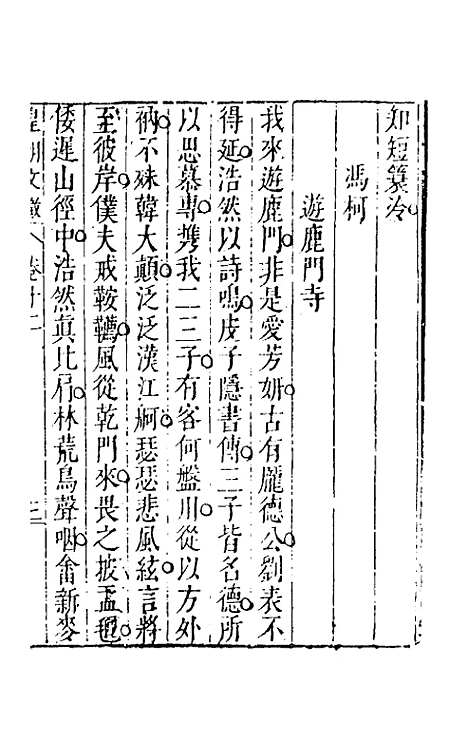 知短簑冷
馮柯
遊鹿門寺
我來遊鹿門非是愛芳妍古有龐德公劉表不
得延浩然以詩鳴皮子隱書傳三子皆名德所
以思慕專携我二三子有客何盤川從以方外
衲不殊韓大顛泛泛漢江舸瑟瑟悲風絃言將
至彼岸僕夫戒鞍韉風從乾門來畏之披孟氊
倭遲山徑中浩然眞比肩林荒鳥聲咽畬新麥
皇明文徵 卷十二 三